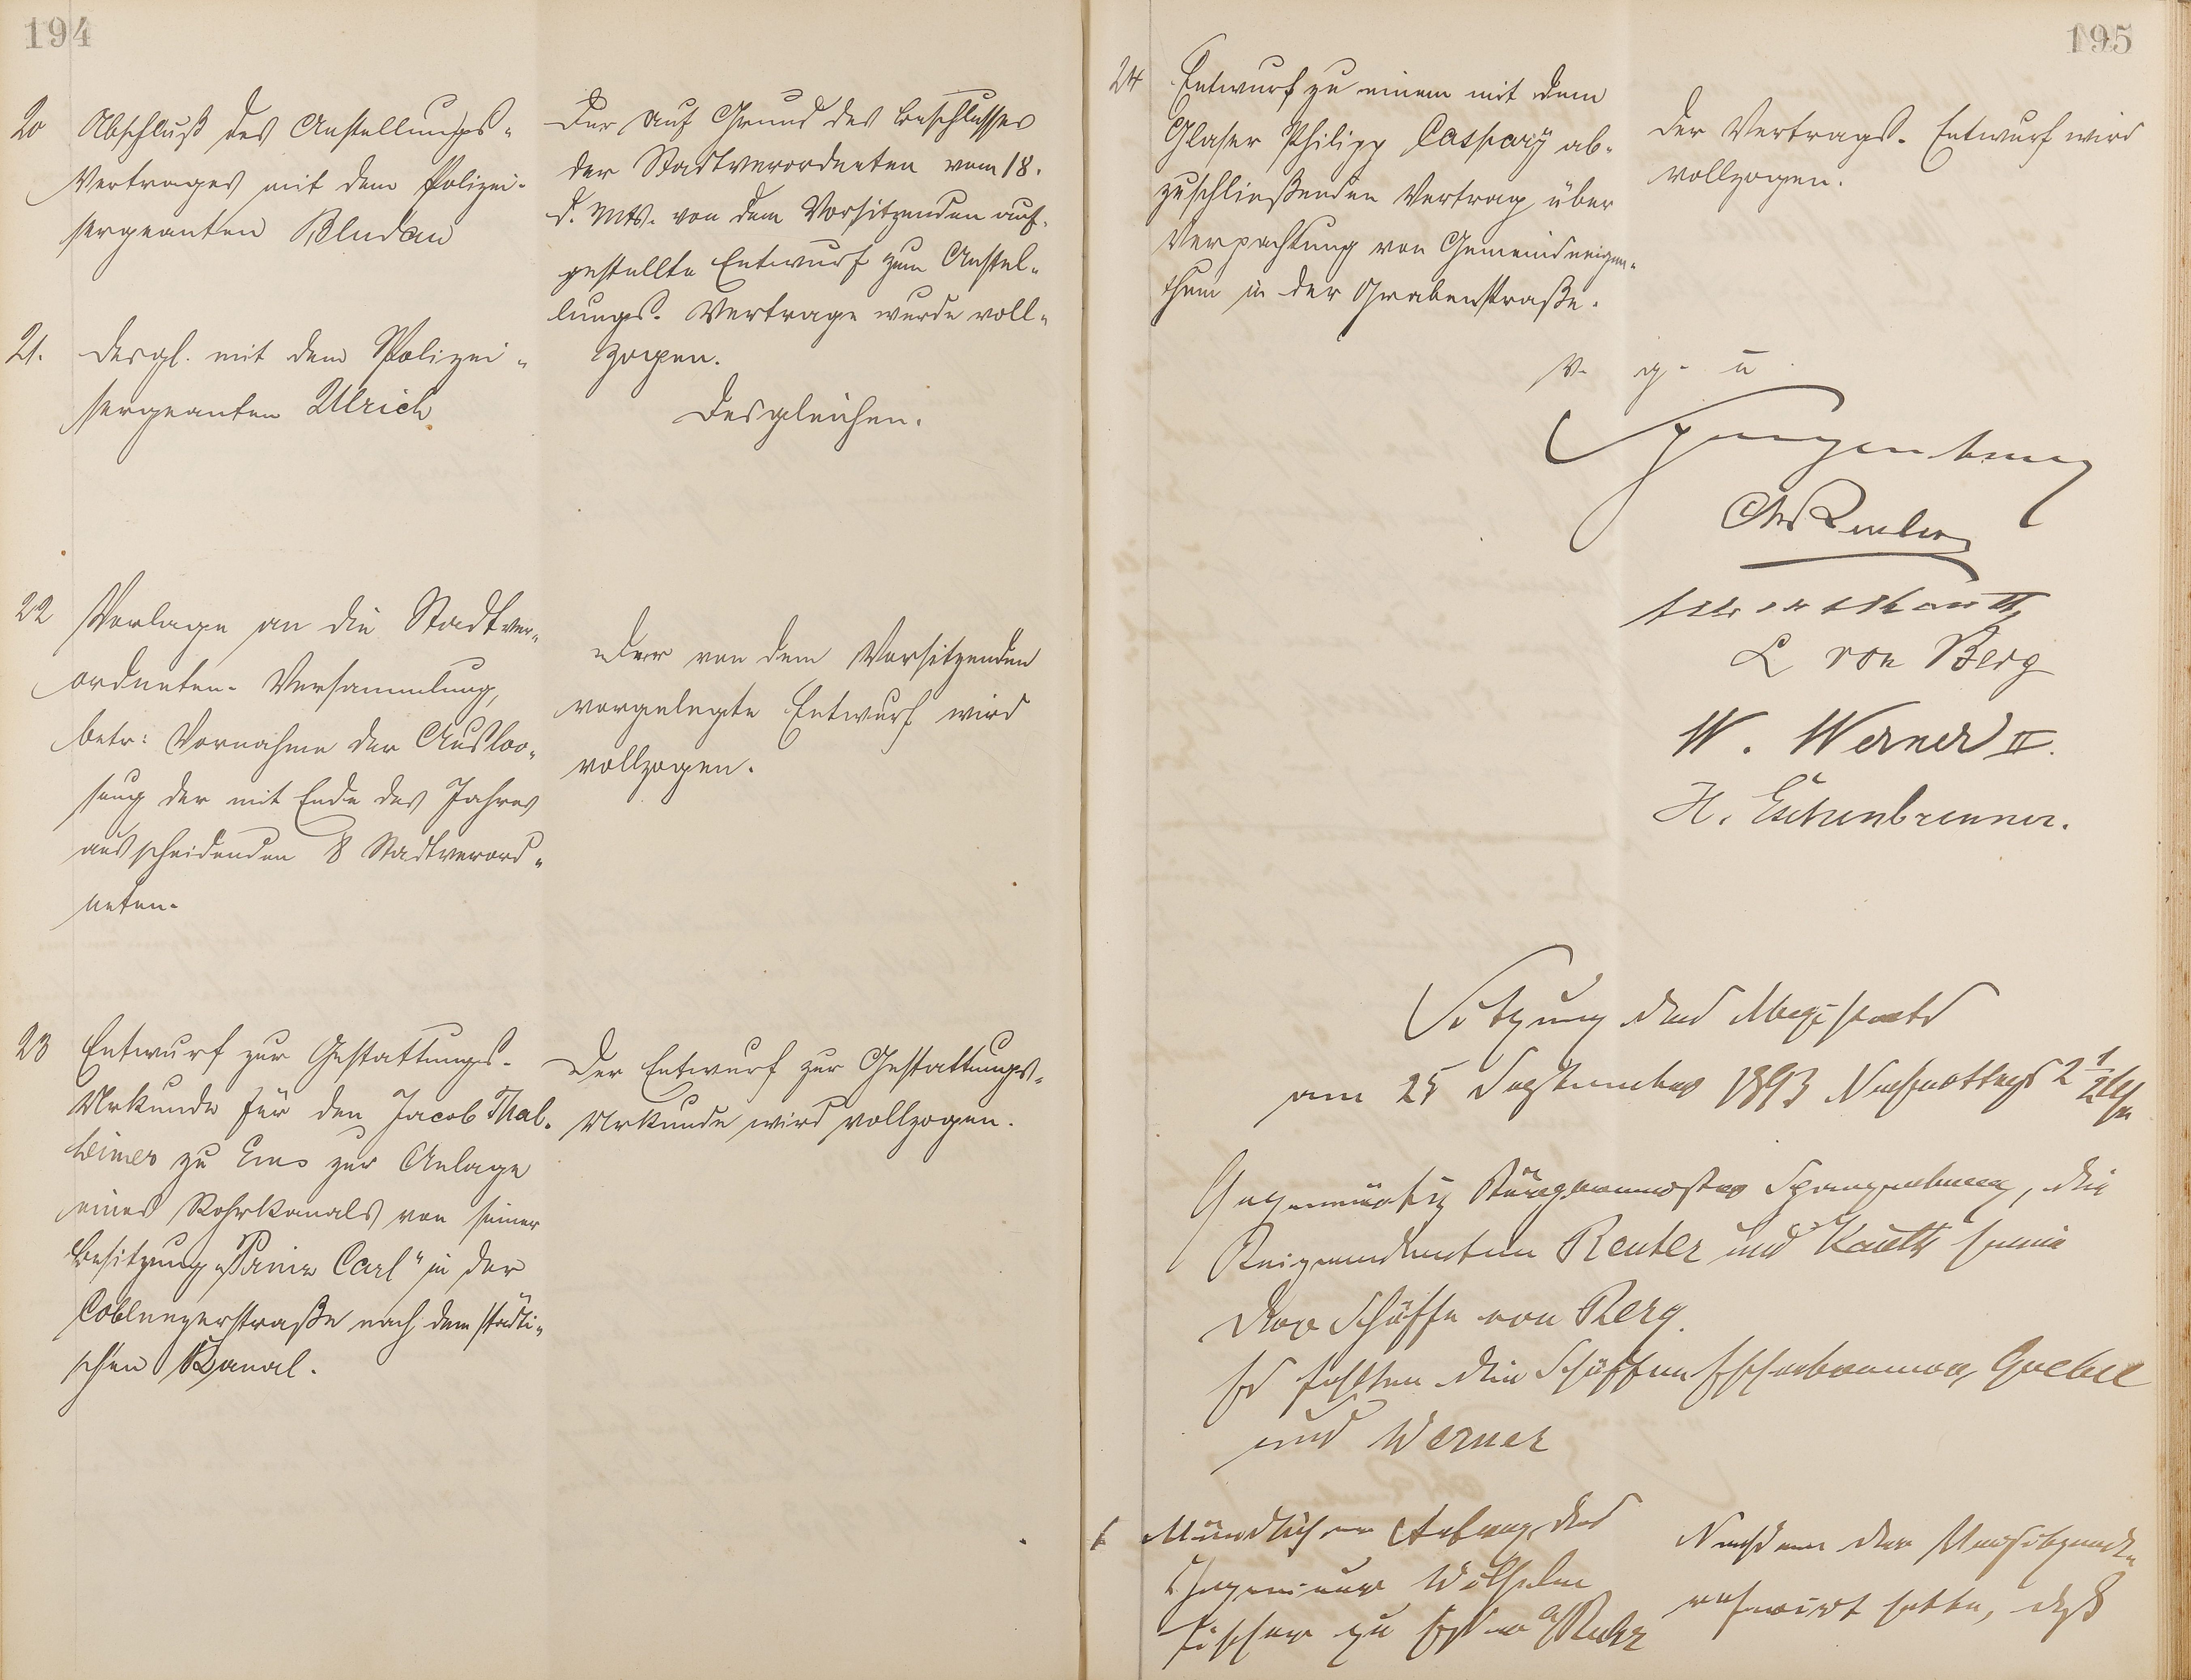 194
20 Abschluß des Anstellungs-
Vertrages mit dem Polizei-
sergeanten Bludau
Der auf Grund des Beschlusses
der Stadtverordneten vom 18.
d. Mts. von dem Vorsitzenden auf-
gestellte Entwurf zum Anstel-
lungs-Vertrage wurde voll-
zogen.
21. Desgl. mit dem Polizei-
sergeanten Ulrich
Desgleichen.
22 Vorlage an die Stadtver-
ordneten-Versammlung,
betr: Vornahme der Ausloo-
sung der mit Ende des Jahres
ausscheidenden 8 Stadtverord-
neten.
Der von dem Vorsitzenden
vorgelegte Entwurf wird
vollzogen.
23 Entwurf zur Gestattungs-
Urkunde für den Jacob Thal-
heimer zu Ems zur Anlage
eines Rohrkanals von seiner
Besitzung „Prinz Carl" in der
Coblenzerstraße nach dem städti-
schen Kanal.
Der Entwurf zur Gestattungs-
Urkunde wird vollzogen.
195
24 Entwurf zu einem mit dem
Glaser Philipp Caspary ab-
zuschließenden Vertrag über
Verpachtung von Gemeindeeigen-
thum in der Grabenstraße.
Der Vertrags-Entwurf wird
vollzogen.
v. g. u.
Spangenberg
Reuter
Kauth
L von Berg
W. Werner II.
H. Eschenbrenner.
Sitzung des Magistrats
am 25 September 1893 Nachmittags 2 1/2 Uhr
Gegenwärtig Bürgermeister Spangenberg, die
Beigeordneten Reuter und Kauth sowie
der Schöffe von Berg.
Es fehlten die Schöffen Eschenbrenner, Goebel
und Werner
1 Mündlicher Antrag des
Ingenieurs Wilhelm
Fischer zu Essen a/Ruhr
Nachdem der Vorsitzende
referirt hatte, daß